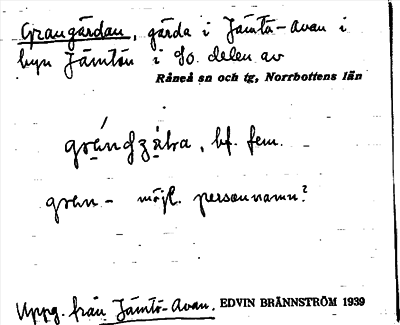 Grangärdan, gärda i Jämtö-Avan i
byn Jämtön i sö. delen av
Råneå sn och tg, Norrbottens län
bf. fem.
gran - möjl. personnamn?
Uppg. från Jämtö-Avan. EDVIN BRÄNNSTRÖM 1939